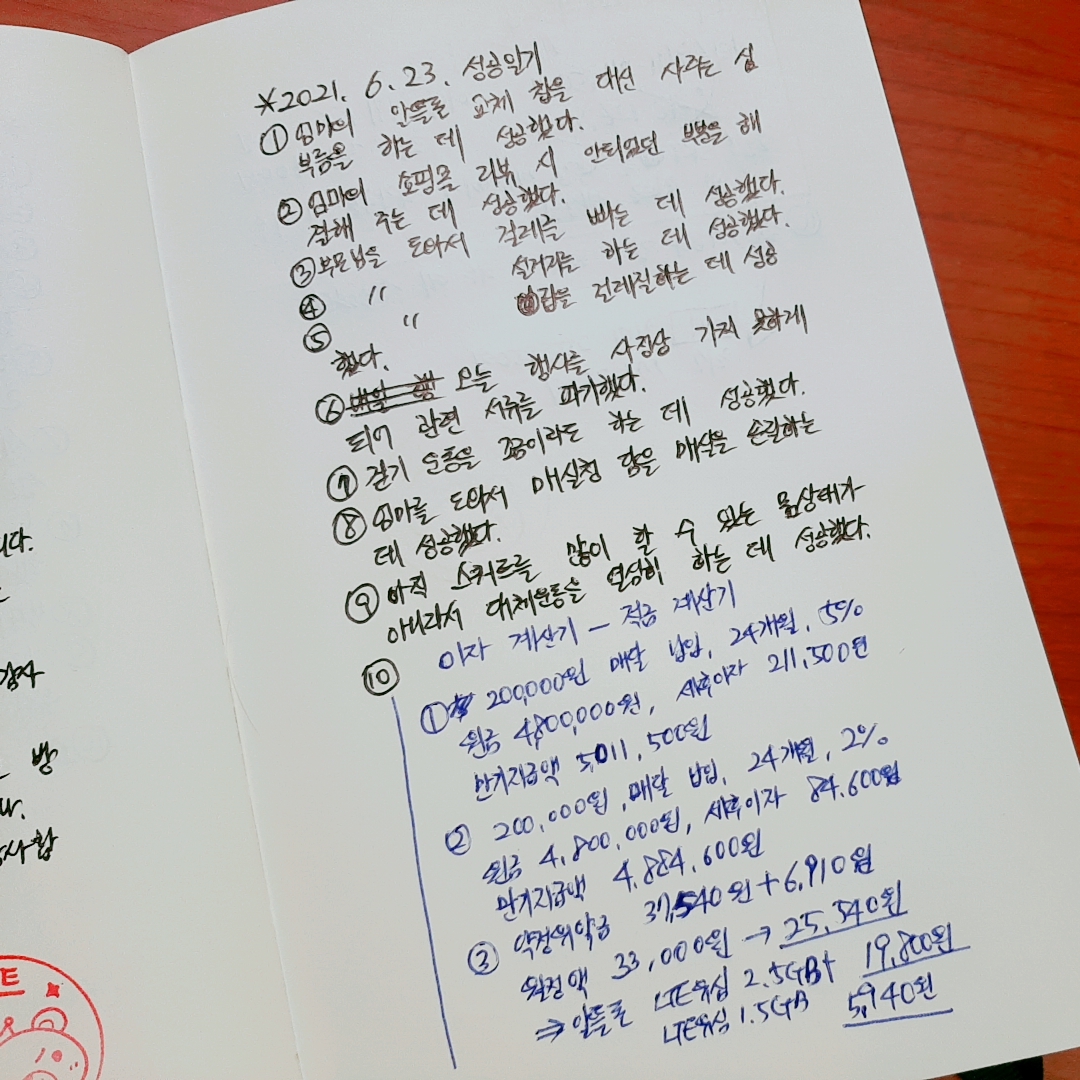 *2021. 6. 23. 성공일기
① 엄마의 알뜰폰 교체 참을 대신 사라는 심
부름을 하는 데 성공했다.
② 엄마의 쇼핑몰 리뷰 시 안되었던 부분을 해
결해 주는 데 성공했다.
③ 부모님을 도와서 걸레를 빠는 데 성공했다.
④ 〃 설거지를 하는 데 성공했다.
⑤ 〃 바닥을 걸레질하는 데 성공
했다.
⑥ 오늘 행사를 사정상 가지 못하게
되어 관련 서류를 파기했다.
⑦ 걷기 운동을 조금이라도 하는 데 성공했다.
⑧ 엄마를 도와서 매실청 담을 매실을 손질하는
데 성공했다.
⑨ 아직 스쿼트를 많이 할 수 있는 몸상태가
아니라서 대체운동을 열성히 하는 데 성공했다.
⑩ 이자 계산기 - 적금 계산기
① 200,000원 매달 납입, 24개월, 5%
원금 4,800,000원, 세후이자 211,500원
만기지급액 5,011,500원
② 200,000원, 매달 납입, 24개월, 2%
원금 4,800,000원, 세후이자 84,600원
만기지급액 4,884,600원
③ 약정위약금 37,540원 + 6,910원
월정액 33,000원 → 25,540원
⇒ 알뜰폰 LTE유심 2.5GB+ 19,800원
LTE유심 1.5GB 5,940원
니다.
감사
방
다.
감사합